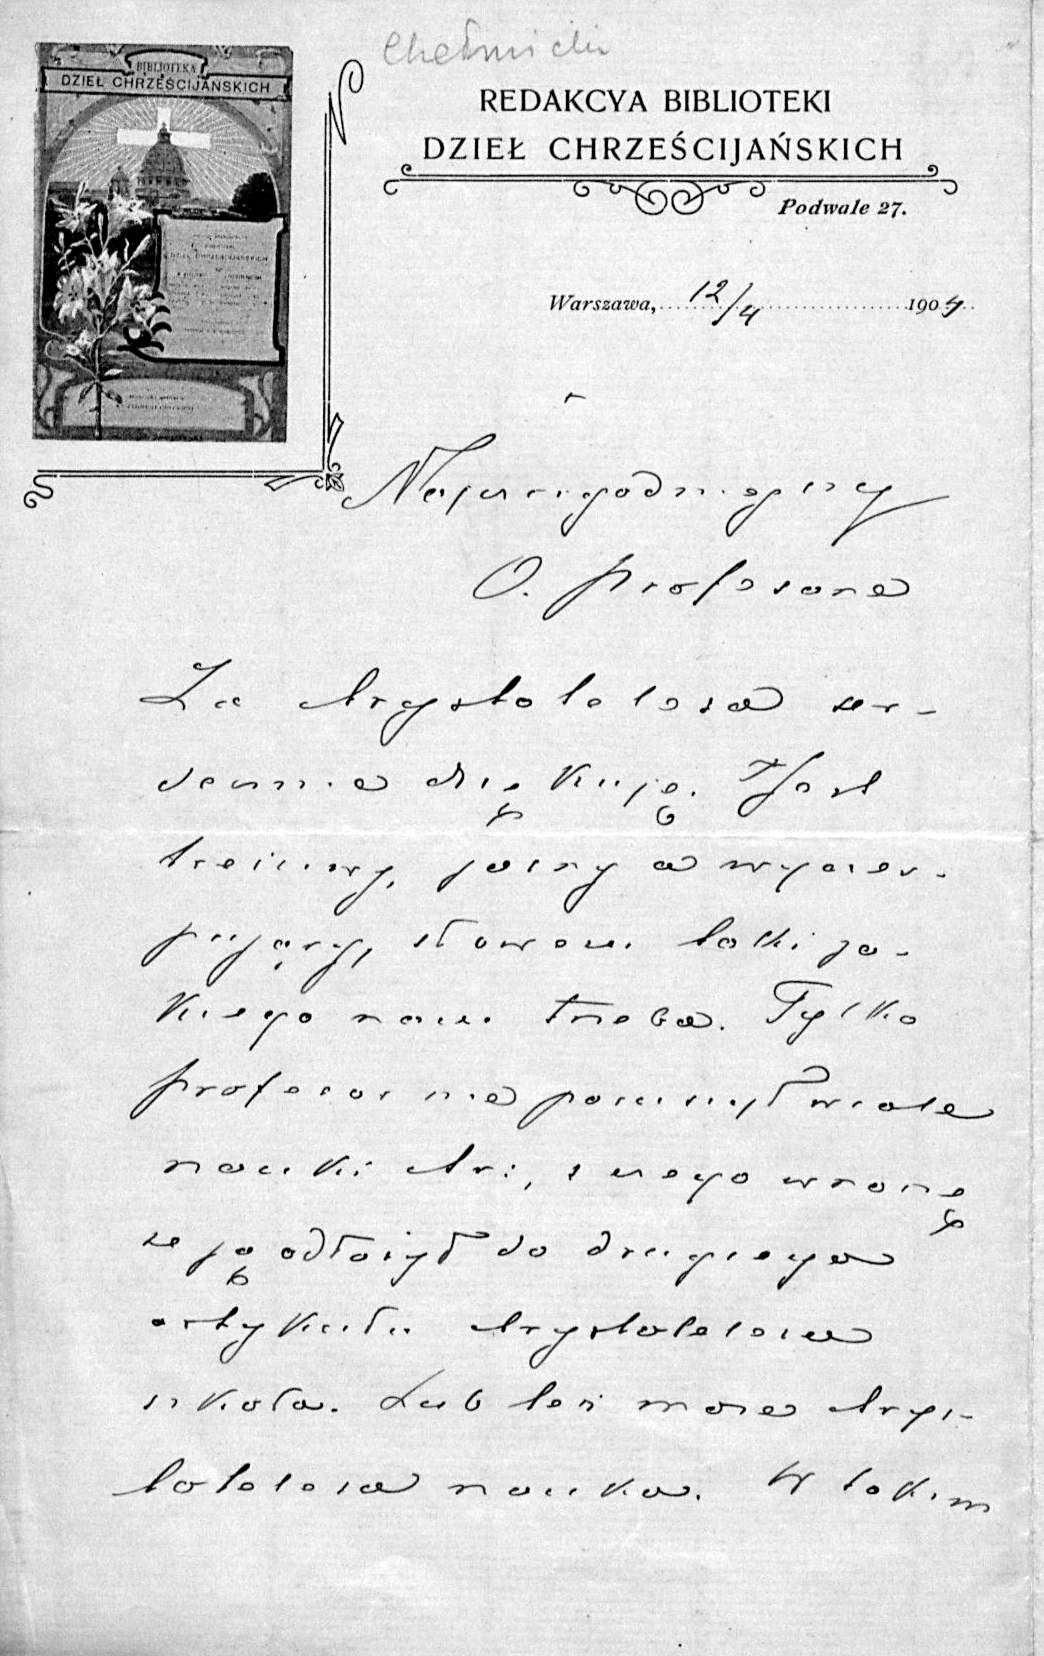 Chełmicki
BIBLJOTEKA
DZIEŁ CHRZEŚCIJAŃSKICH
REDAKCYA BIBLIOTEKI
DZIEŁ CHRZEŚCIJAŃSKICH
Podwale 27.
Warszawa, 12/4 1904
O. Profesorze
Za Arystotelesa ser-
decznie dziękuję. Jest
treściwy, jasny a wyczer-
pujący, słowem taki ja-
kiego nam trzeba. Tylko
profesor nie pomieścił wcale
nauki Ar:, z czego wnoszę
że ją odłożył do drugiego
artykułu Arystotelesa
szkoła. Lub też może Arys-
totelesa nauka. W takim